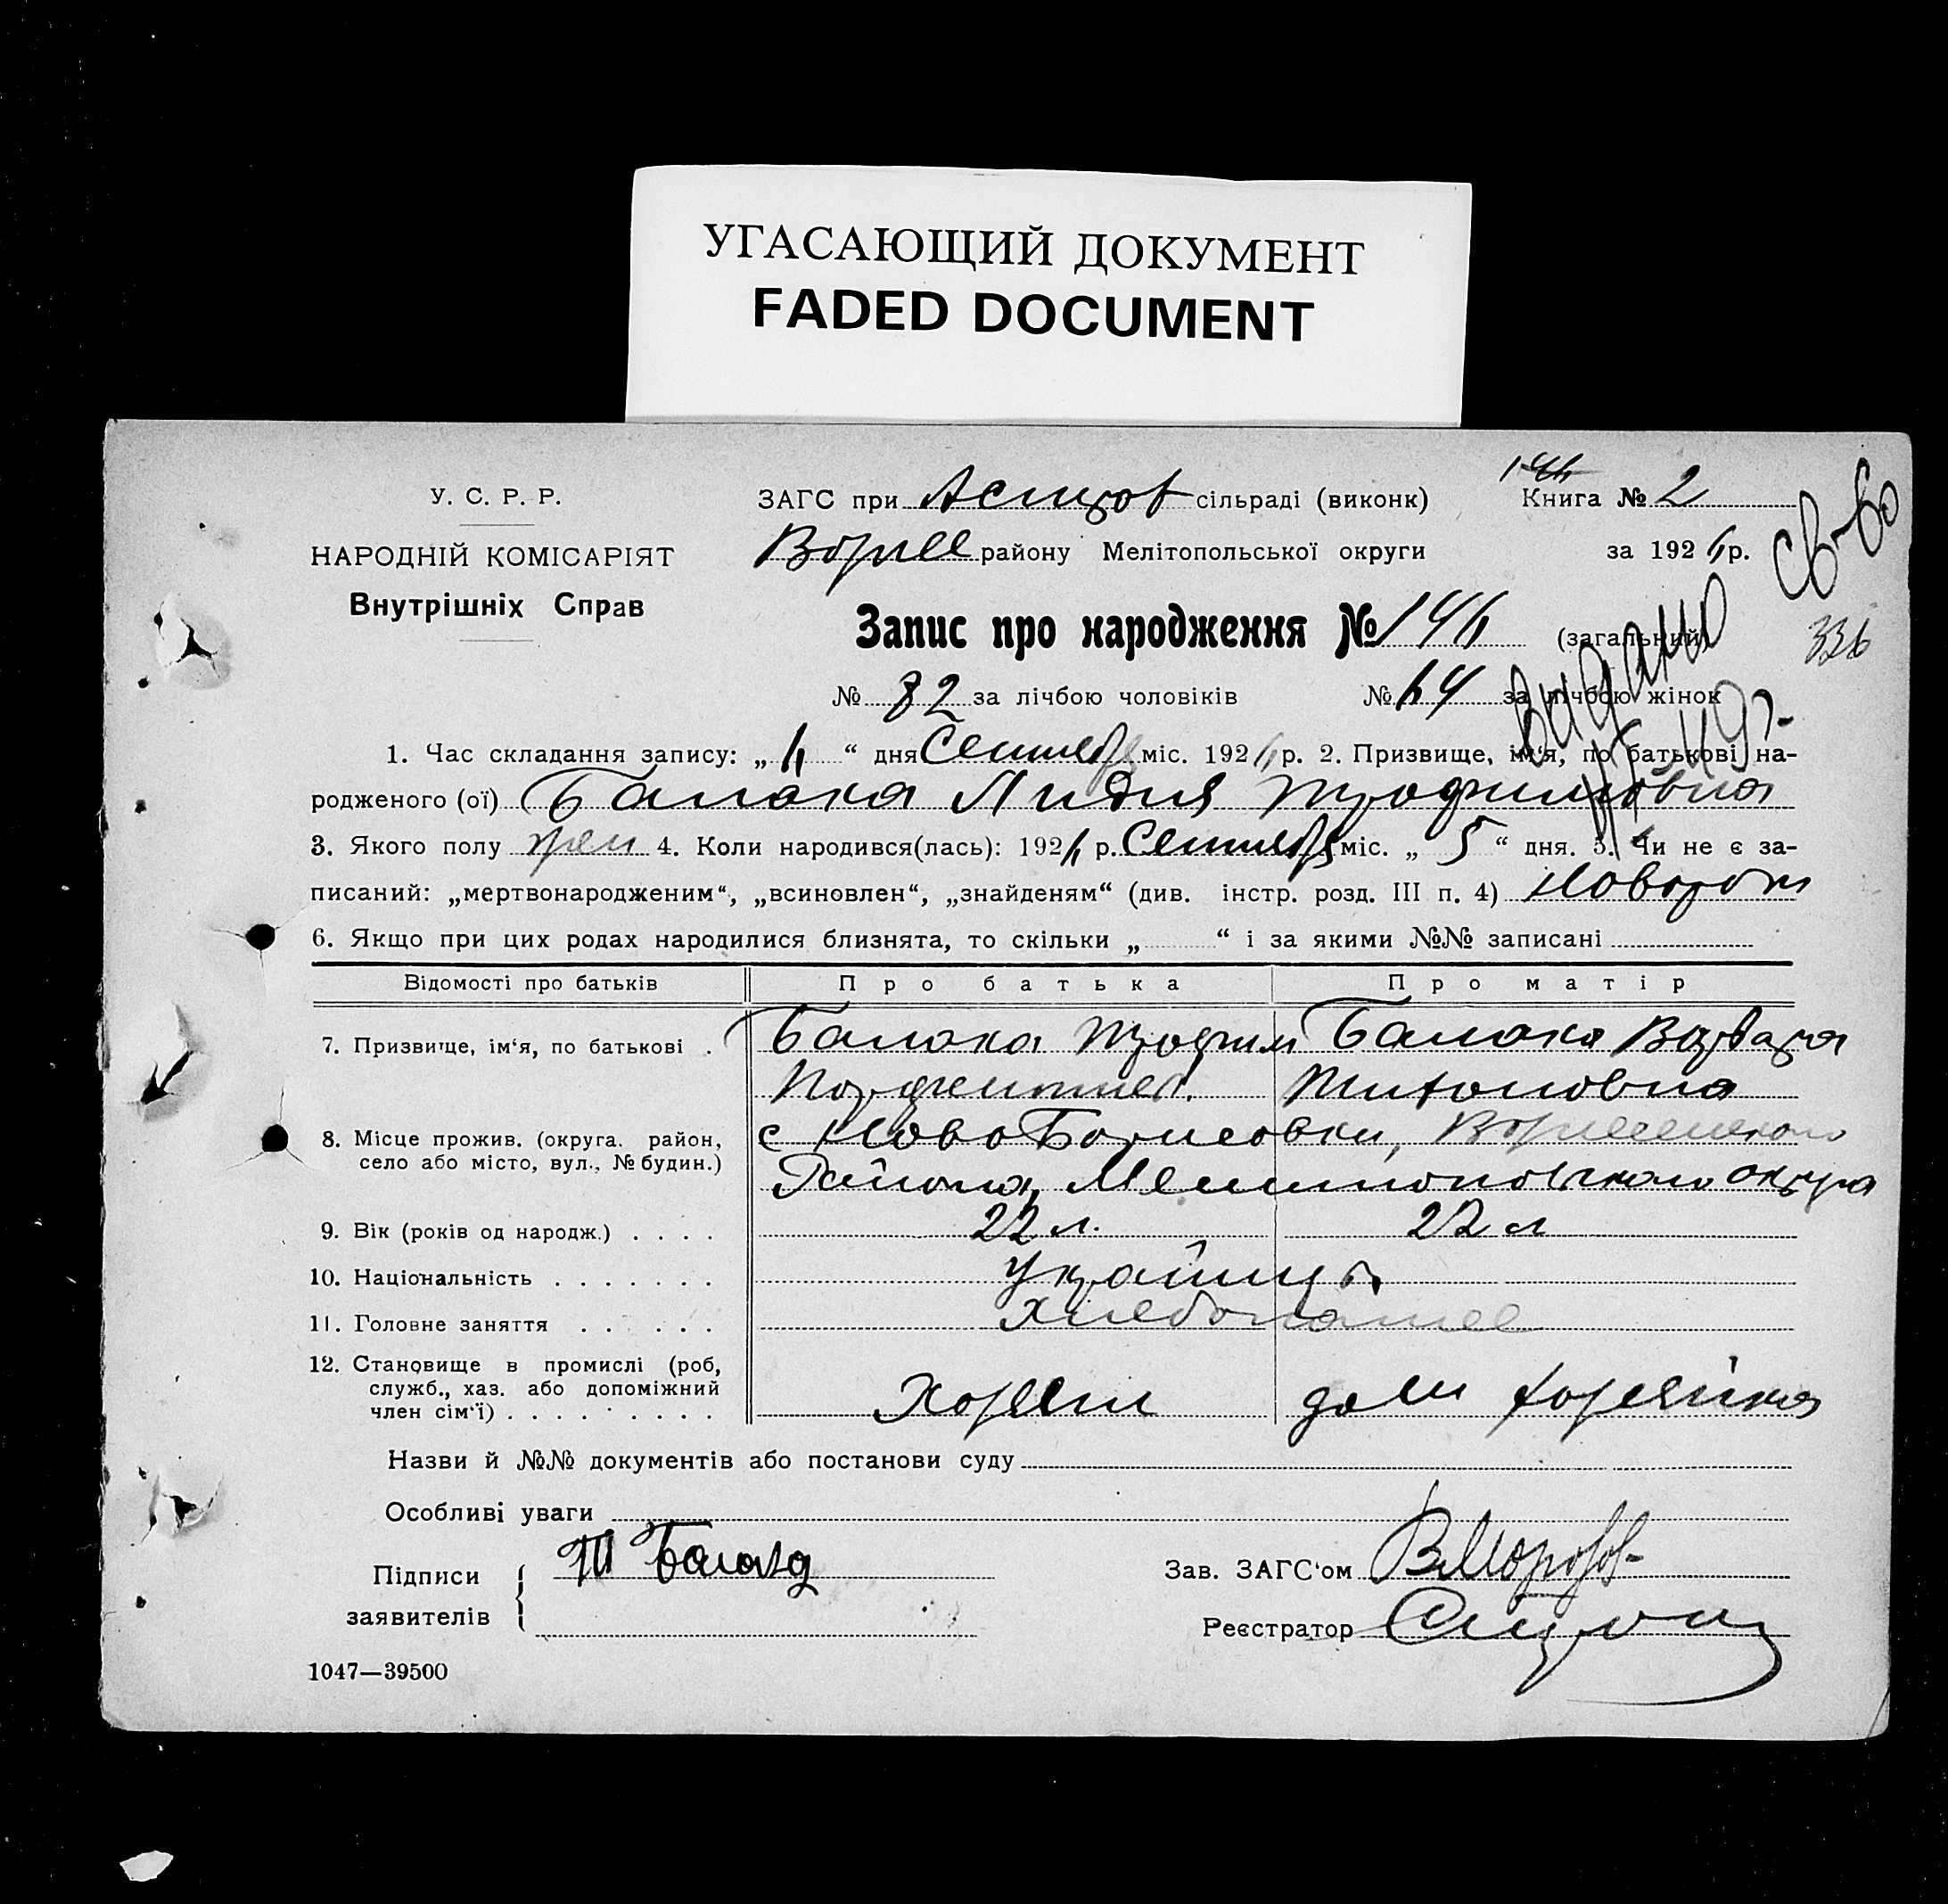 УГАСАЮЩИЙ ДОКУМЕНТ
FADED DOCUMENT
У. С. Р. Р.
НАРОДНІЙ КОМІСАРІЯТ
Внутрішніх Справ
ЗАГС при сільраді (виконк)
Книга № 2
району Мелітопольської округи
за 192 р.
Св-во
Запис про народження № 146 (загальний)
336
№ 82 за лічбою чоловіків № 64 за лічбою жінок
Видано
1. Час складання запису: „ 6 “ дня Сентября міс. 1926 р. 2. Призвище, ім‘я, по батькові на-
родженого (ої) Балака Лидия Трофимовна
3. Якого полу жен 4. Коли народився(лась): 1926 р. Сентября міс. „ 5 “ дня. 5. Чи не є за-
писаний: „мертвонародженим“, „всиновлен“, „знайденям“ (див. інстр. розд. III п. 4) Новорож
6. Якщо при цих родах народилися близнята, то скільки „ “ і за якими №№ записані
Відомості про батьків Про батька Про матір
7. Призвище, ім‘я, по батькові . Балака Трофим Балака Варвара
Титововна
8. Місце прожив. (округа. район, с НовоБорисовки,
село або місто, вул., № будин.) Района, Мелитопольского округа
9. Вік (років од народж.) . . . . 22 л. 22 л
10. Національність . . . . . . . Україн
11. Головне заняття . . . . . . Хлебопаш
12. Становище в промислі (роб,
служб., хаз. або допоміжний
член сім‘ї) . . . . . . . . . Хозяин дом хозяйка
Назви й №№ документів або постанови суду
Особливі уваги
Підписи Т Балака
заявителів
Зав. ЗАГС‘ом ВМорозов
Реєстратор
1047—39500